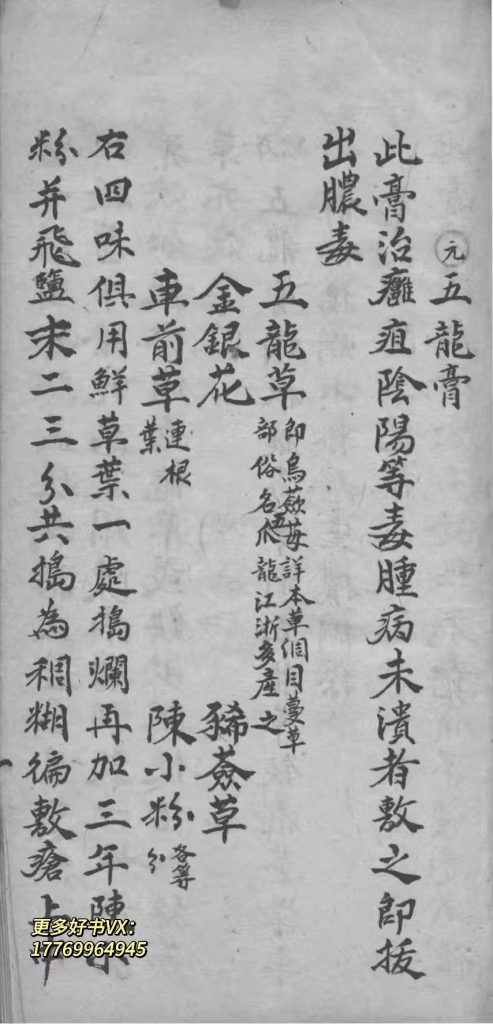 元 五龍膏
此膏治癰疽陰陽等毒腫病未潰者敷之即拔
出膿毒
五龍草 即烏蘞苺詳本草綱目蔓草
部俗名五爪龍江浙多產之
金銀花 豨薟草
車前草 連根
葉 陳小粉 各等
分
右四味俱用鮮草葉一處搗爛再加三年陳小
粉并飛鹽末二三分共搗為稠糊徧敷瘡上中
更多好书VX:
17769964945